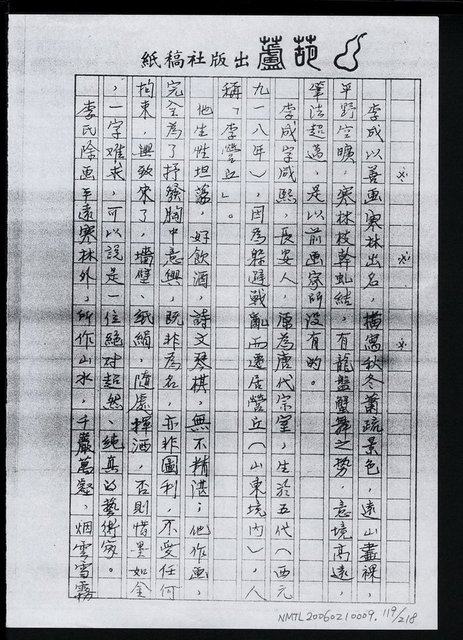 葫蘆出版社稿紙
※ ※ ※
李成以善画寒林出名，描寫秋冬蕭疏景色，遠山盡裸，
平野空曠，寒林枝幹虬結，有龍盤蟹舞之勢，意境高遠，
筆法超邁，是以前画家所沒有的。
李成字咸熙，長安人，原為唐代宗室，生於五代（西元
九一八年），因為躲避戰亂而遷居營丘（山東境內），人
稱「李營丘」。
他生性坦蕩，好飲酒，詩文琴棋，無不精湛；他作画，
完全為了抒發胸中意興，既非為名，亦非圖利，不受任何
拘束，興致來了，墻壁、紙絹，隨處揮洒，否則惜墨如金
，一字难求，可以説是一位絕对超然、純真的藝術家。
李氏除画平遠寒林外，所作山水，千巖萬壑、烟雲雪霧
NMTL20060210009. 119/218